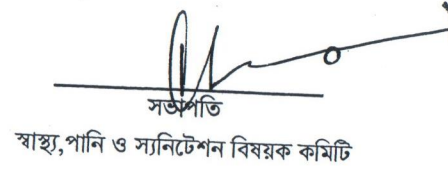 সভাপতি
স্বাস্থ্য,পানি ও স্যনিটেশন বিষয়ক কমিটি